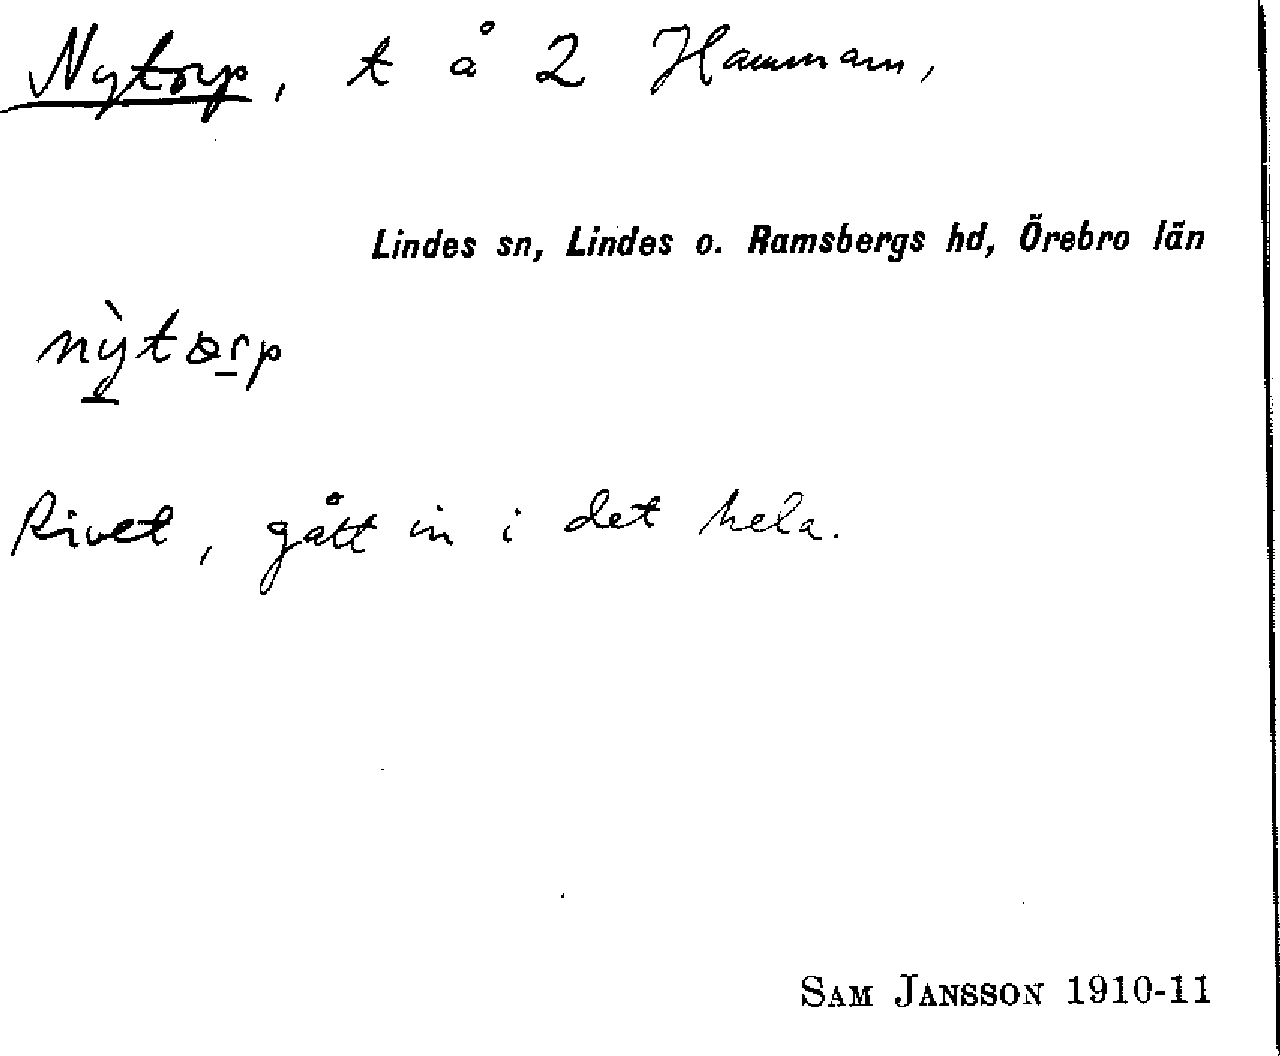 Nytorp, t å 2 Hammarn,
Lindes sn, Lindes o. Ramsbergs hd, Örebro län
Rivet, gått in i det hela.
SAM JANSSON 1910-11